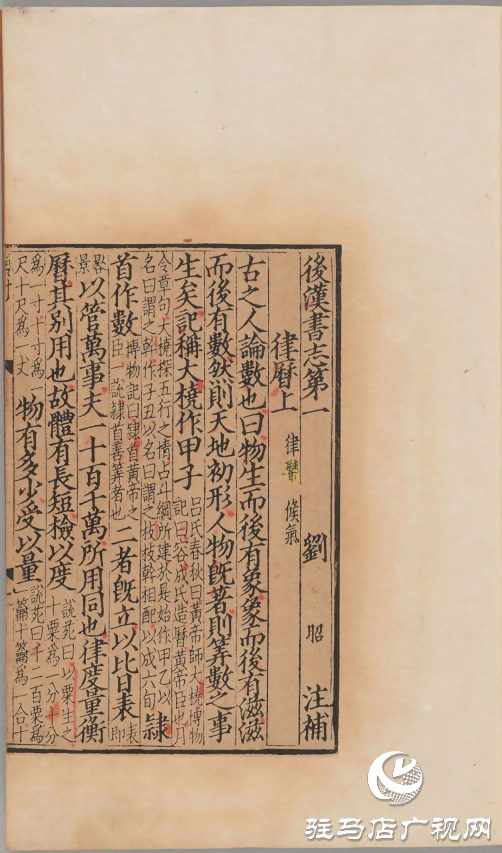 後漢書志第一 劉 昭 注補
律曆上 律 候氣
古之人論數也曰物生而後有象象而後有滋滋
而後有數然則天地初形人物旣著則筭數之事
生矣記稱大橈作甲子 呂氏春秋曰黃帝師大橈博物 記曰容成氏造曆黃帝臣也月
令章句大橈探五行之情占斗綱所建於是始作甲乙以 名曰謂之幹作子丑以名曰謂之枝枝幹相配以成六旬 隸
首作數 博物記曰隸首黃帝之 臣一說隸首善筭者也 二者旣立以比日表 表 即
晷 景 以管萬事夫一十百千萬所用同也律度量衡
曆其別用也故體有長短檢以度 說苑曰以粟生之 十粟爲一分十分
爲一寸十寸爲 尺十尺爲一丈 物有多少受以量 說苑曰千二百粟爲一 籥十籥爲一合十
驻马店广视网